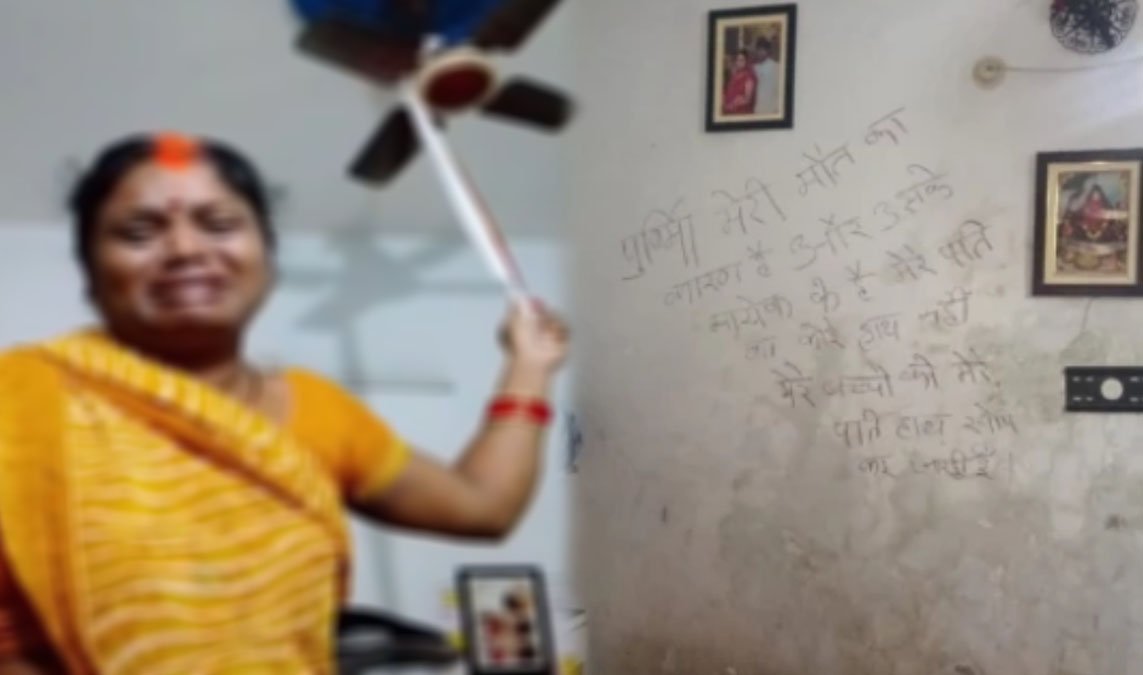 पुर्णिमा मेरी मौत का
कारण है और उसके
मायेके के है मेरे पति
का कोई हाथ नहीं
मेरे बच्चो को मेरे
पति हाथ सौप
कर जारही है।